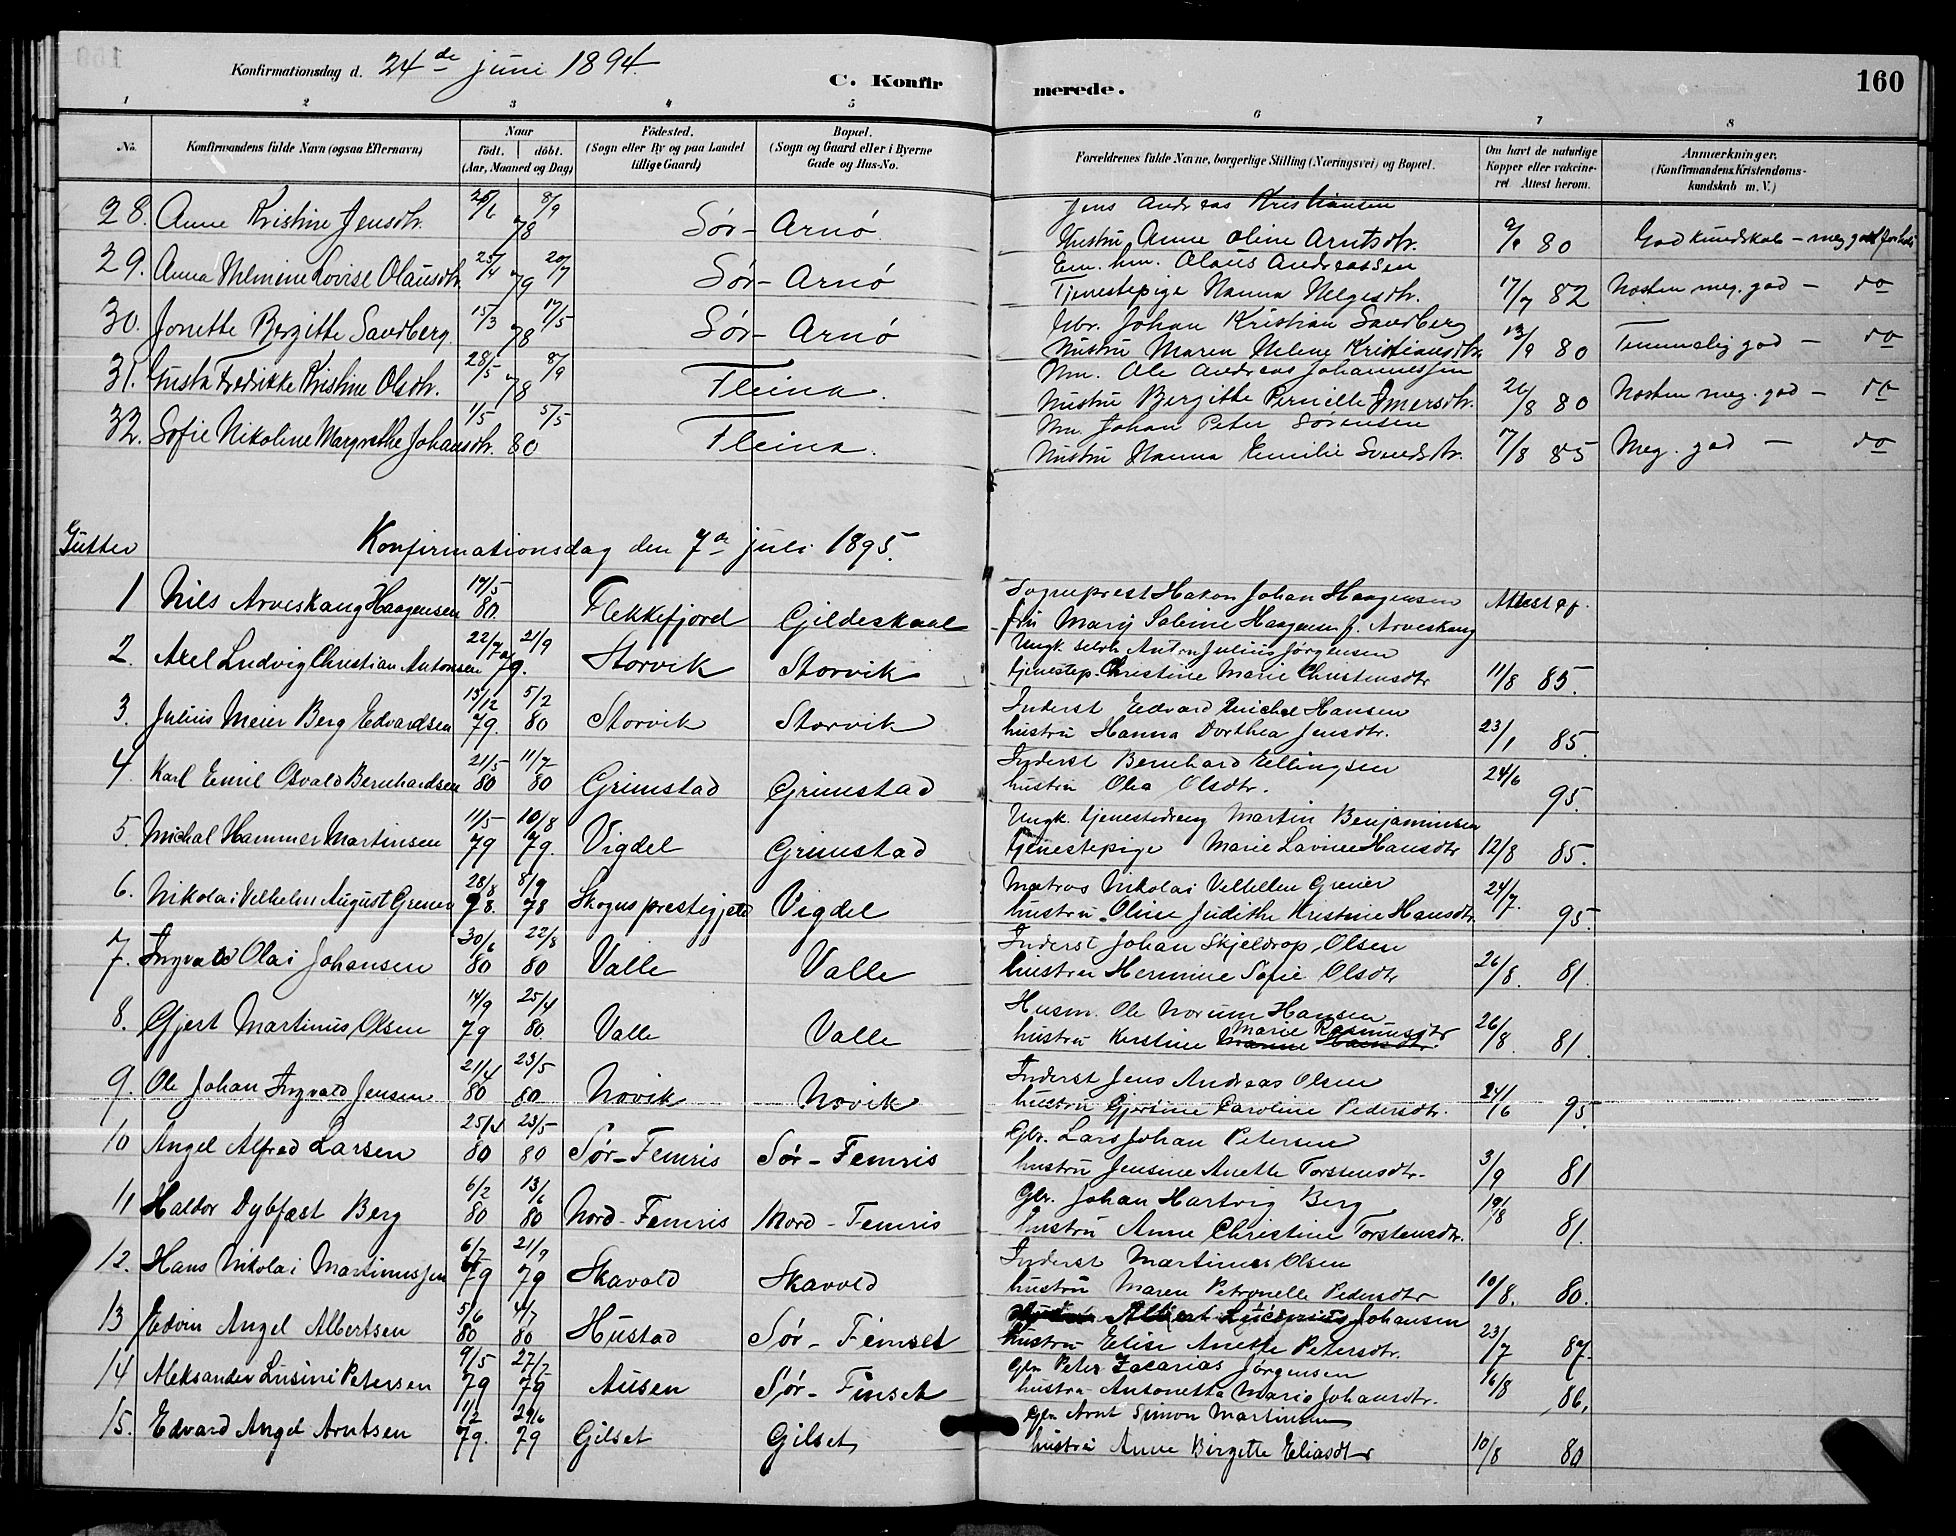 Konfirmationsdag d. 24de juni 1894.
C. Konfirmerede.
160
1 2 3 4 5 6 7 8
No.
Konfirmandens fulde Navn (ogsaa Efternavn)
Naar
födt. döbt.
(Aar, Maaned og Dag)
Födested.
(Sogn eller By og paa Landet tillige Gaard)
Bopæl.
(Sogn og Gaard eller i Byerne Gade og Hus-No.
Forældrenes fulde Navne, borgerlige Stilling (Næringsvei) og Bopæl.
Om havt de naturlige Kopper eller vakcineret Attest herom.
Anmærkninger.
(Konfirmandens Kristendomskundskab m. V.)
28. Anne Kristine Jensdtr. 8/9 78 Sör-Arnö. Jens Andreas Kristiansen
Hustru Anne Oline Arntsdtr. 80 God kundskab - meg. god
29. Anna Lovise Olausdtr. 25/4 20/7 79 Sör-Arnö Olaus Andreassen
Tjenestepige Hanna Helgesdtr. 17/7 82 Næsten meg. god - do
30. Jonette Bergitte Sandberg. 15/3 17/5 78 Sör-Arnö Johan Kristian Sandberg
Hustru Maren Helene Kristiansdtr. 13/9 80 Temmelig god - do
31. Gusta Fredrikke Kristine Olsdtr. 28/5 8/9 78 Fleina. Hm. Ole Andreas Johannessen
Hustru Bergitte Pernille 26/8 80 Næsten meg. god - do
32. Sofie Nikoline Margrethe Johansdtr. 1/5 5/5 80 Fleina. Hm. Johan Peter Sörensen
Hustru Hanna Emilie 17/8 85 Meg. god - do
Gutter
Konfirmationsdag den 7de juli 1895.
1 Nils Arveskaug Haagensen 17/5 80. Flekkefjord Gjildeskaal Sogneprest Hakon Johan Haagensen Attest af.
fru Marij Haagensen f. Arveskaug
2. Axel Ludvig Christian Antonsen 22/7 21/9 79. Storvik Storvik Ungk. Anton Julius Jörgensen
tjenestep. Christine Marie Christensdtr 11/8 85.
3. Julius Meier Berg Edvardsen 13/12 79. 5/2 80 Storvik Storvik Inderst Edvard Michel Hansen
hustru Hanna Dorthea Jensdtr. 23/1 85.
4. Karl Emil Osvald Bernhardsen 21/5 80 11/7 80 Grimstad Grimstad Inderst Bernhard Ellingsen
hustru Olea Olsdtr. 24/6 95.
5. Michal Hammer Martinsen 11/5 79 10/8 79. Vigdel Grimstad Ungk. tjenestedreng Martin Benjaminsen
tjenestepige Marie Lavine Hansdtr 12/8 85.
6. Nikolai Vilhelm August Grener 28/8 78. 8/9 78 Vigdel Matros Nikolai Grener
hustru Oline Judithe Kristine Hansdtr. 24/7. 95.
7. Ingvald Olai Johansen 30/6 80 22/8 80 Valle Valle Inderst Johan Skjeldrop Olsen
hustru Hermine Sofie Olsdtr 26/8. 81.
8. Gjert Martinus Olsen 14/9 79 25/4 80. Valle Valle Husm. Ole Norum Hansen
hustru Kerstine Marie Rasmusdtr 26/8. 81.
9. Ole Johan Ingvald Jensen 21/4 80 23/5 80 Novik Novik Inderst Jens Andreas Olsen
hustru Gjertine Caroline Pedersdtr. 24/6 95.
10 Angel Alfred Larsen 25/4 80 23/5 80 Sör-Femris Sör-Femris Gbr. Lars Johan Petersen
hustru Jensine Anette Torstensdtr. 3/9 81
11 Haldor Dybfest Berg 6/2 80 13/6 80 Nord-Femris Nord-Femris Gbr. Johan Hartvig Berg
hustru Anne Christine Torstensdtr. 19/8 81.
12. Hans Nikolai Martinussen 6/7 79 21/9 79 Skavold Skavold Inderst Martinus Olsen
hustru Maren Petronelle Pedersdtr 10/8. 80.
13 Edvin Angel Albertsen 5/6 80 4/7 80 Hustad Sör-Finset Albert Johansen
hustru Elise Anette Petersdtr. 23/7 87.
14 Aleksander Lusini Petersen 9/5 79 27/7 79 Ausen Sör-Finset Gbr Peter Zacarias Jörgensen
hustru Antonetta Maria Johansdtr. 16/8 86.
15. Edvard Angel Arntsen 1/2 79. 29/6 79 Gilset Gilset Gbr Arnt Simon Martinsen
hustru Anne Birgitte Eliasdtr 10/8 80